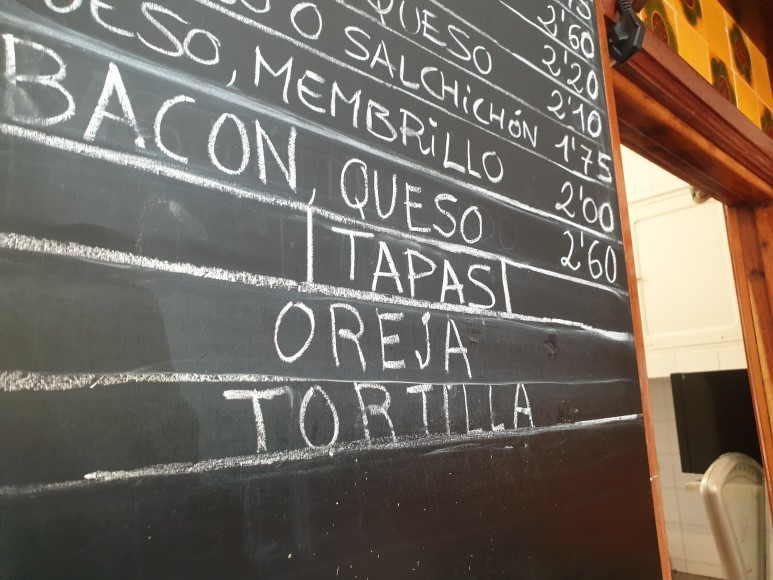 2'60
2'20
QUESO 2'10
O SALCHICHÓN 1'75
UESO, MEMBRILLO 2'00
BACON, QUESO 2'60
TAPAS
OREJA
TORTILLA